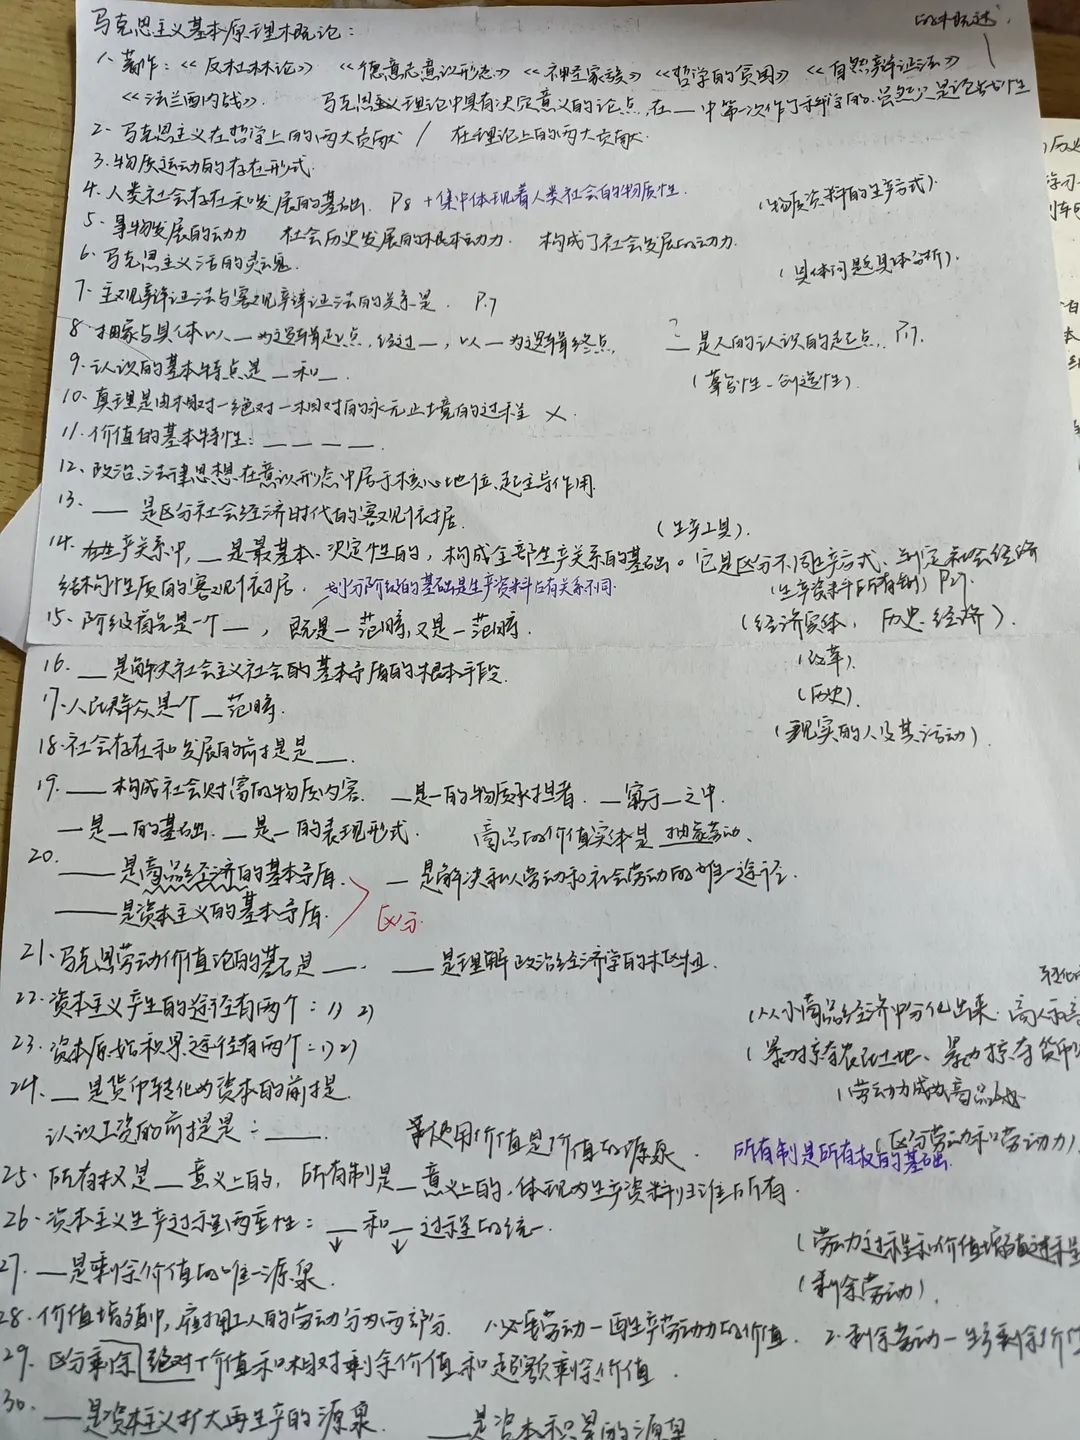 马克思主义基本原理概论：
的概述
1、著作：《反杜林论》 《德意志意识形态》《神圣家族》《哲学的贫困》《自然辩证法》
《法兰西内战》. 马克思主义理论中具有决定意义的论点，在__中第一次作了科学的、虽然只是论战性
2. 马克思主义在哲学上的两大贡献 / 在理论上的两大贡献.
3. 物质运动的存在形式.
4. 人类社会存在和发展的基础. P8 +集中体现着人类社会的物质性. (物质资料的生产方式).
5. 事物发展的动力 社会历史发展的根本动力. 构成了社会发展的动力.
6. 马克思主义活的灵魂. (具体问题具体分析).
7. 主观辩证法与客观辩证法的关系是. P.7
8. 抽象与具体以__为逻辑起点，经过__，以__为逻辑终点. __是人的认识的起点. P7.
9. 认识的基本特点是__和__. (摹写性_创造性).
10. 真理是由相对—绝对—相对的永无止境的过程 ×.
11. 价值的基本特性：__ __ __ __.
12. 政治、法律思想在意识形态中居于核心地位、起主导作用.
13. __ 是区分社会经济时代的客观依据. (生产工具).
14. 在生产关系中，__是最基本、决定性的，构成全部生产关系的基础。它是区分不同生产方式、判定社会经济
结构性质的客观依据. 划分阶级的基础是生产资料占有关系不同. (生产资料所有制) P27.
15. 阶级首先是一个__，既是__范畴，又是__范畴. (经济实体，历史、经济).
16. __是解决社会主义社会的基本矛盾的根本手段. (改革).
17. 人民群众是个__范畴. (历史).
18. 社会存在和发展的前提是__. (现实的人及其活动).
19. __构成社会财富的物质内容. __是__的物质承担者. __寓于__之中.
__是__的基础. __是__的表现形式. 商品的价值实体是 抽象劳动.
20. __是商品经济的基本矛盾. __是解决私人劳动和社会劳动的唯一途径.
__是资本主义的基本矛盾. 区分.
21. 马克思劳动价值论的基石是__. __是理解政治经济学的枢纽.
22. 资本主义产生的途径有两个：1) 2) (从小商品经济中分化出来. 商人和高
23. 资本原始积累途径有两个：1) 2) (暴力掠夺农民土地、暴力掠夺货币
24. __是货币转化为资本的前提. (劳动力成为商品)
认识工资的前提是：__. 使用价值是价值的源泉. (区分劳动和劳动力)
所有制是所有权的基础.
25. 所有权是__意义上的，所有制是__意义上的，体现为生产资料归谁所有.
26. 资本主义生产过程两重性：__和__过程的统一. (劳动过程和价值增殖过程
27. __是剩余价值的唯一源泉. (剩余劳动).
28. 价值增殖中，雇佣工人的劳动分为两部分. 1.必要劳动—再生产劳动力的价值. 2.剩余劳动—生产剩余价值
29. 区分剩余绝对价值和相对剩余价值和超额剩余价值.
30. __是资本主义扩大再生产的源泉. __是资本积累的源泉